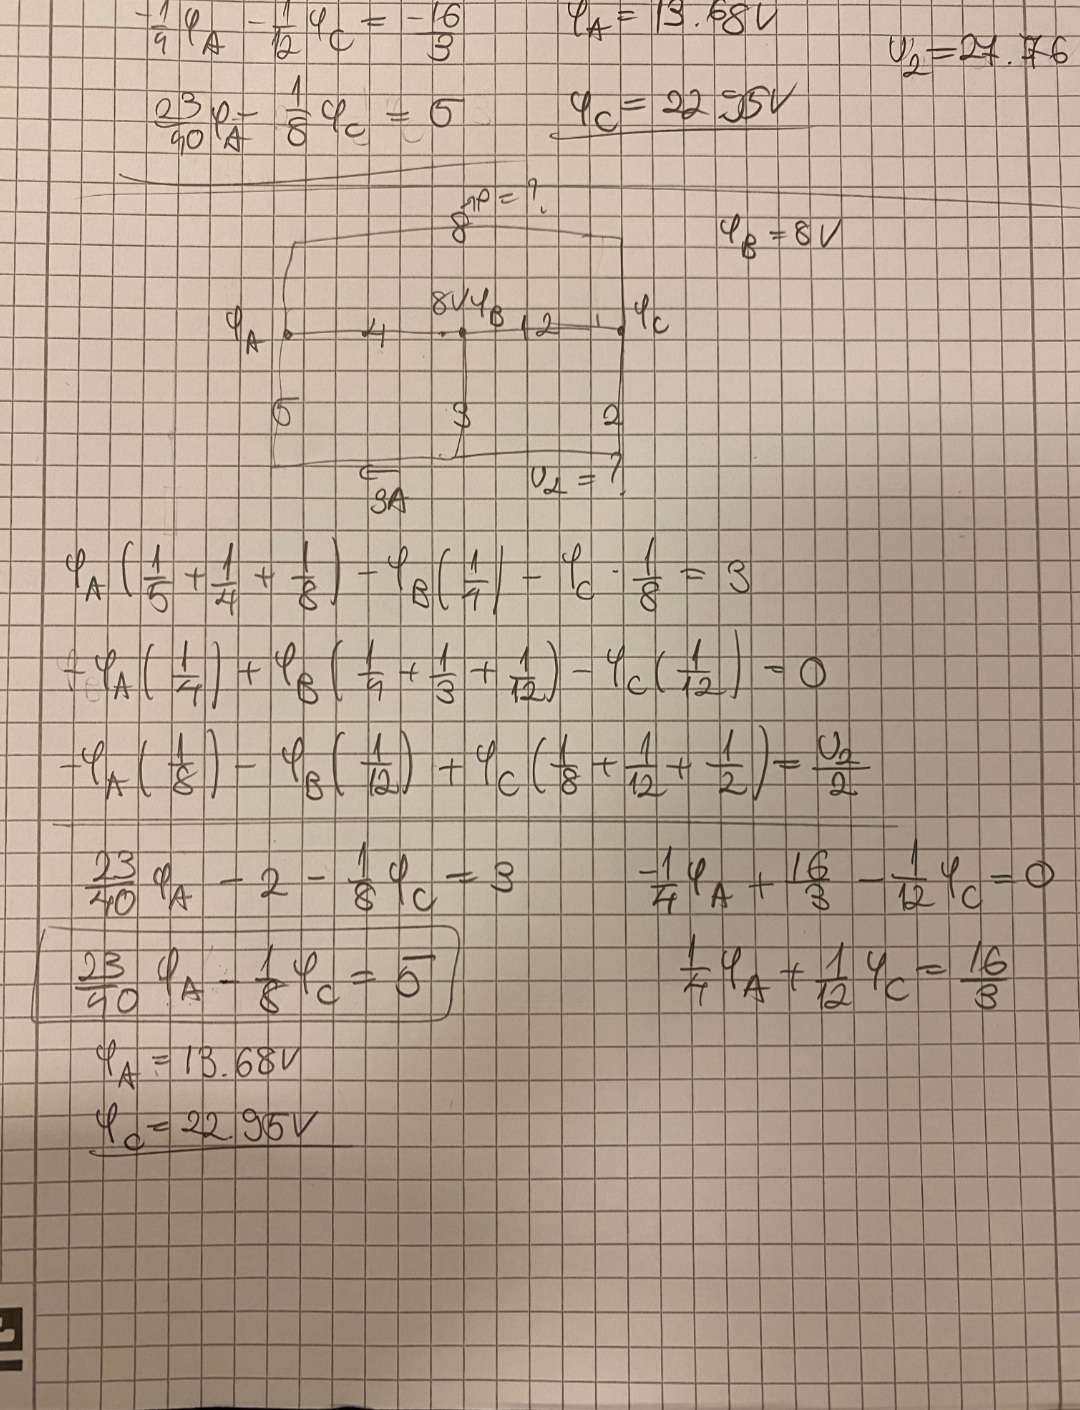 -1/4 φA - 1/12 φC = -16/3   φA = 13.68V
U2 = 27.76
23/40 φA - 1/8 φC = 5   φC = 22.95V
8 np = ?
φB = 8V
φA 4 8V φB 12 φC
5 3 2
3A U2 = ?
φA (1/5 + 1/4 + 1/8) - φB (1/4) - φC · 1/8 = 3
-φA (1/4) + φB (1/4 + 1/3 + 1/12) - φC (1/12) = 0
-φA (1/8) - φB (1/12) + φC (1/8 + 1/12 + 1/2) = U2/2
23/40 φA - 2 - 1/8 φC = 3   -1/4 φA + 16/3 - 1/12 φC = 0
23/40 φA - 1/8 φC = 5   1/4 φA + 1/12 φC = 16/3
φA = 13.68V
φC = 22.95V